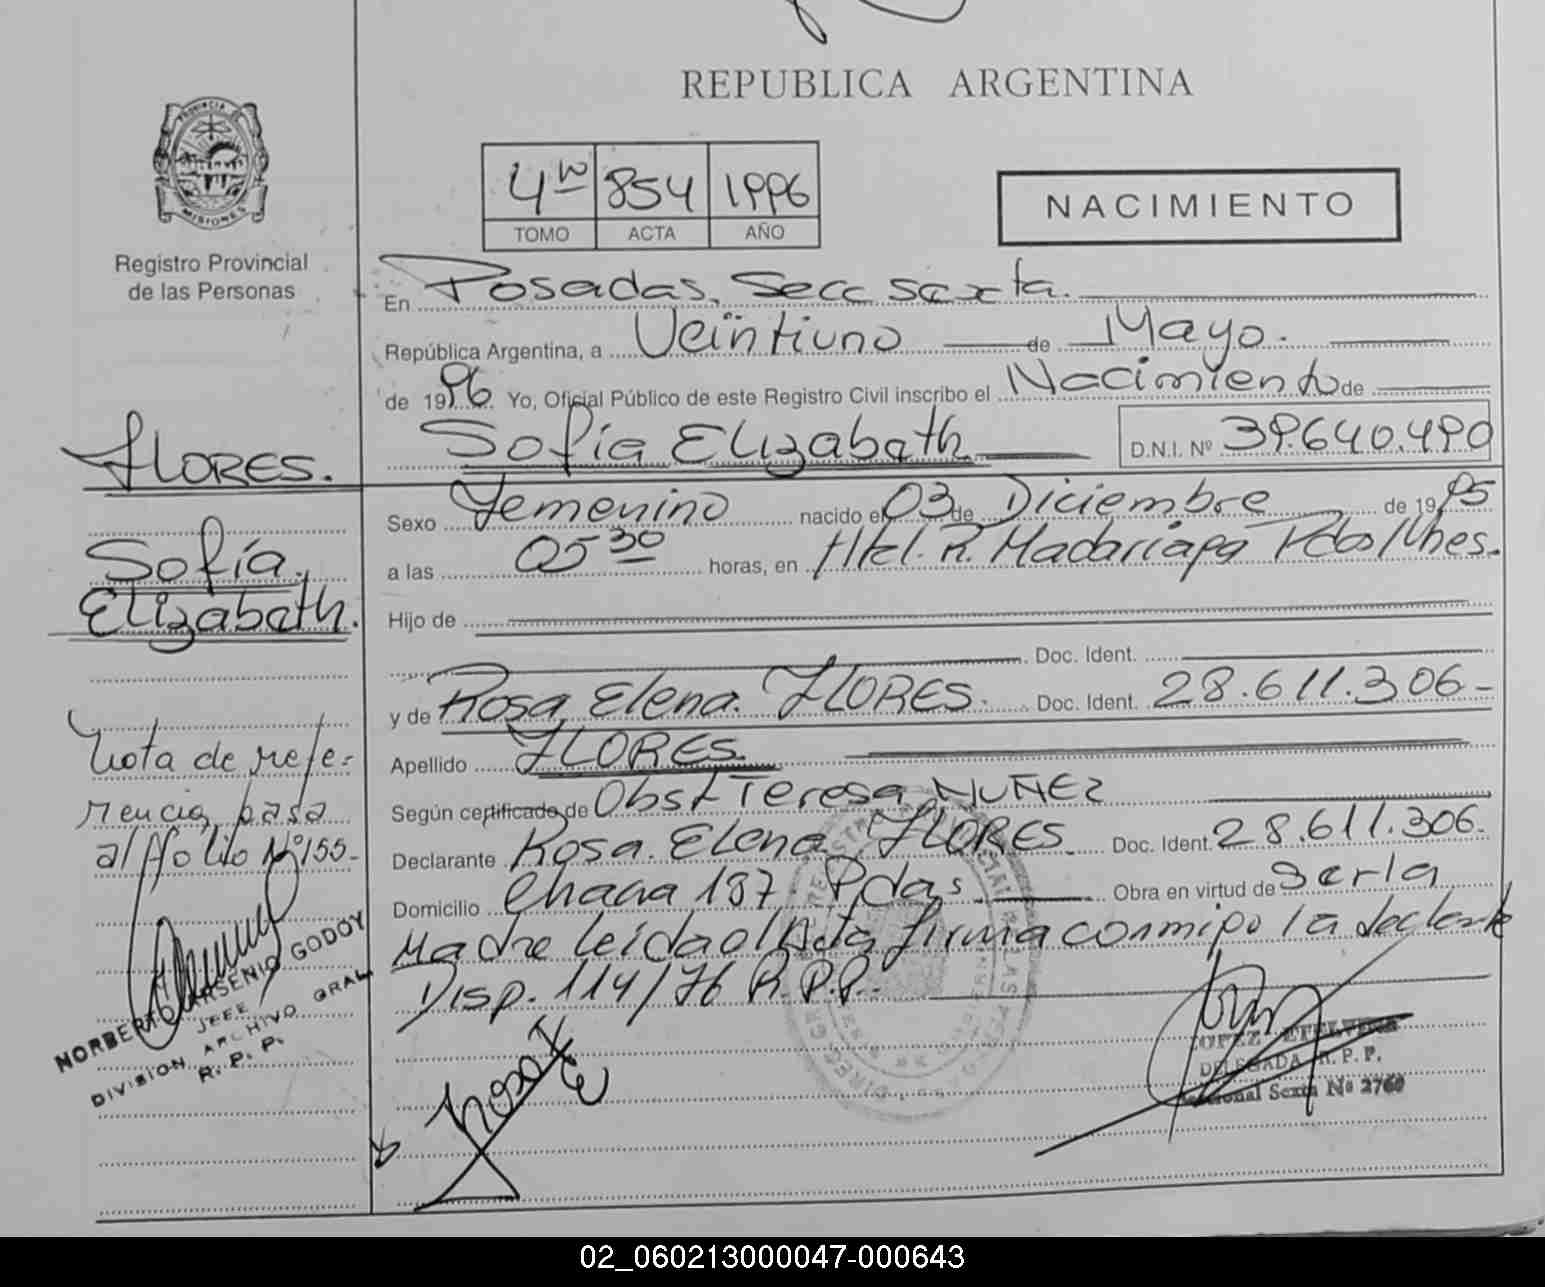 REPUBLICA ARGENTINA
PROVINCIA DE
MISIONES
Registro Provincial
de las Personas
4to 854 1996
TOMO ACTA AÑO
NACIMIENTO
En Posadas, Secc sexta.
República Argentina, a Veintiuno de Mayo.
de 1996 Yo, Oficial Público de este Registro Civil inscribo el Nacimiento de
Sofía Elizabath D.N.I. Nº 39.640.490
FLORES.
Sofía
Elizabath.
Sexo Femenino nacido el 03 de Diciembre de 1995
a las 05 30 horas, en Htal. R. Madariaga Pdas/Mnes.
Hijo de
Doc. Ident.
y de Rosa Elena FLORES. Doc. Ident. 28.611.306-
Apellido FLORES.
Según certificado de Obst Teresa NUÑEZ
Declarante Rosa Elena FLORES. Doc. Ident. 28.611.306-
Domicilio Chaca 187 Pdas Obra en virtud de Serla
Madre leida el Acta firma conmigo la declante
Disp. 114/76 R.P.P.
Nota de refe-
rencia pasa
al ffolio Nº 155-
NORBERTO ARSENIO GODOY
JEFE
DIVISION ARCHIVO GRAL
R. P. P.
Rosa F
E
LOPEZ ETELVINA
DELEGADA R. P. P.
Seccional Sexta Nº 2760
02_060213000047-000643